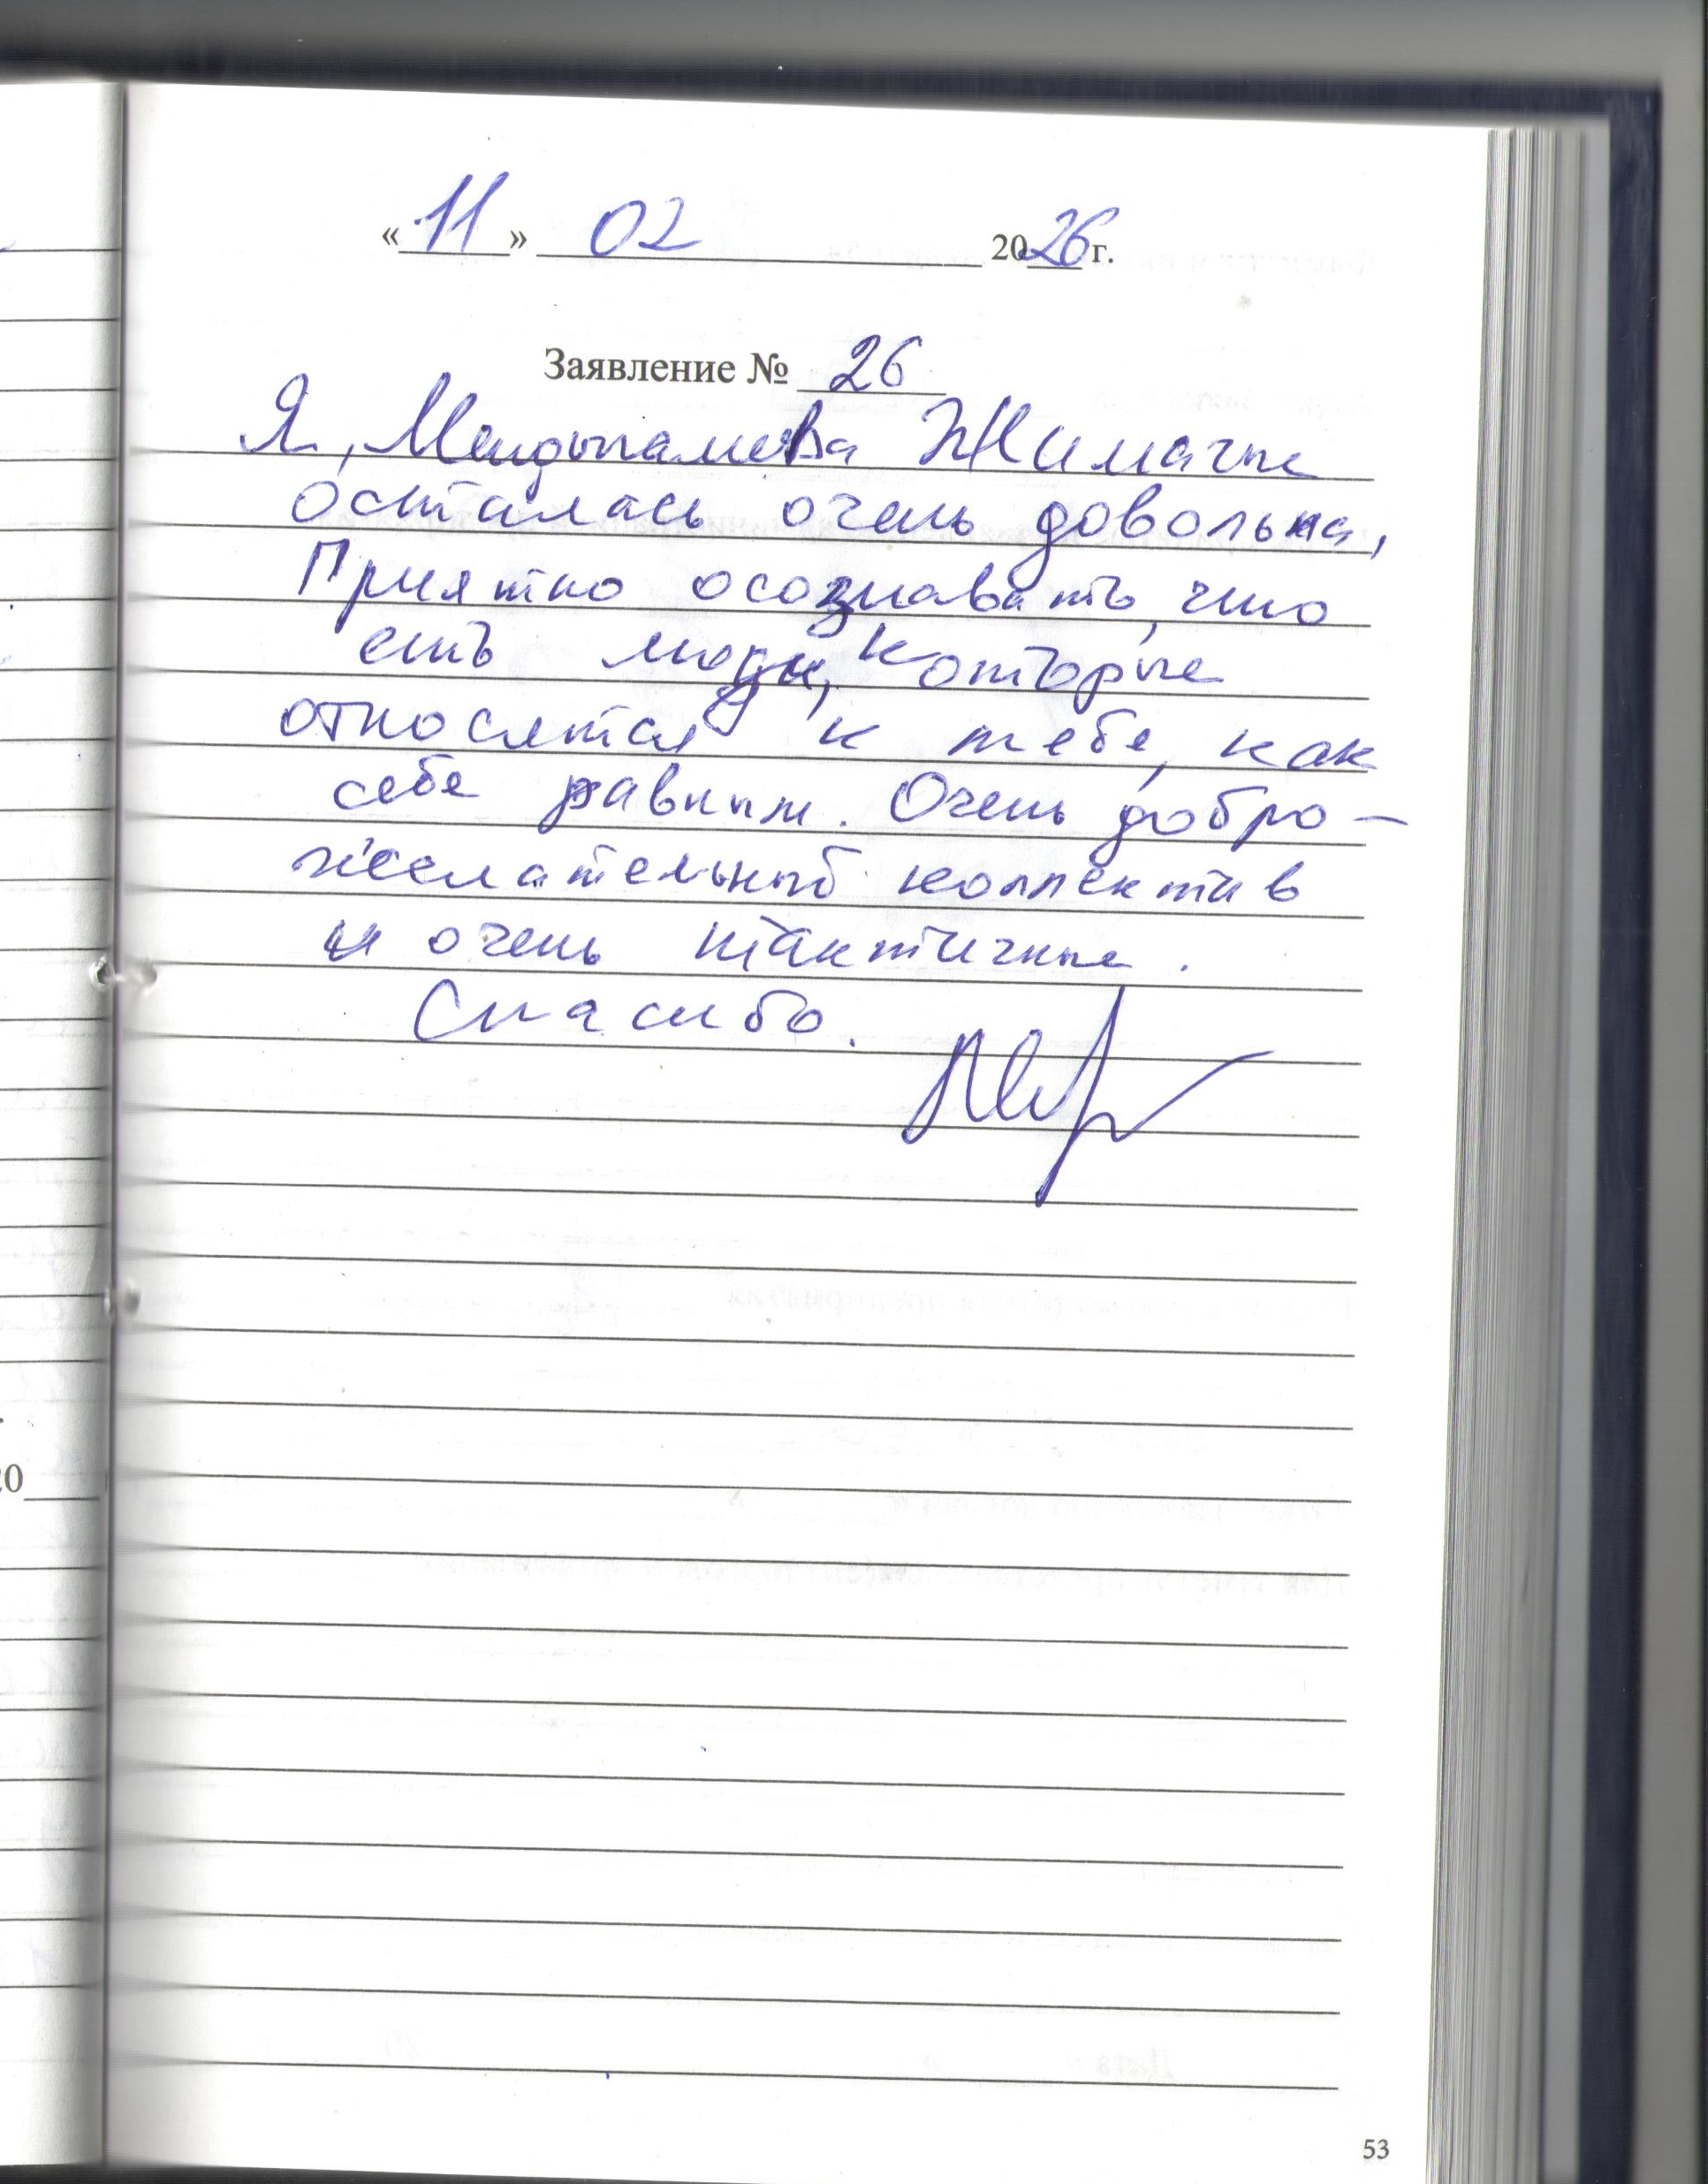 «11» 02 2026 г.
Заявление № 26
Я,
осталась очень довольна,
Приятно осознавать, что
есть люди, которые
относятся к тебе, как
себе равным. Очень добро-
желательный коллектив
и очень тактичные.
Спасибо.
20
53